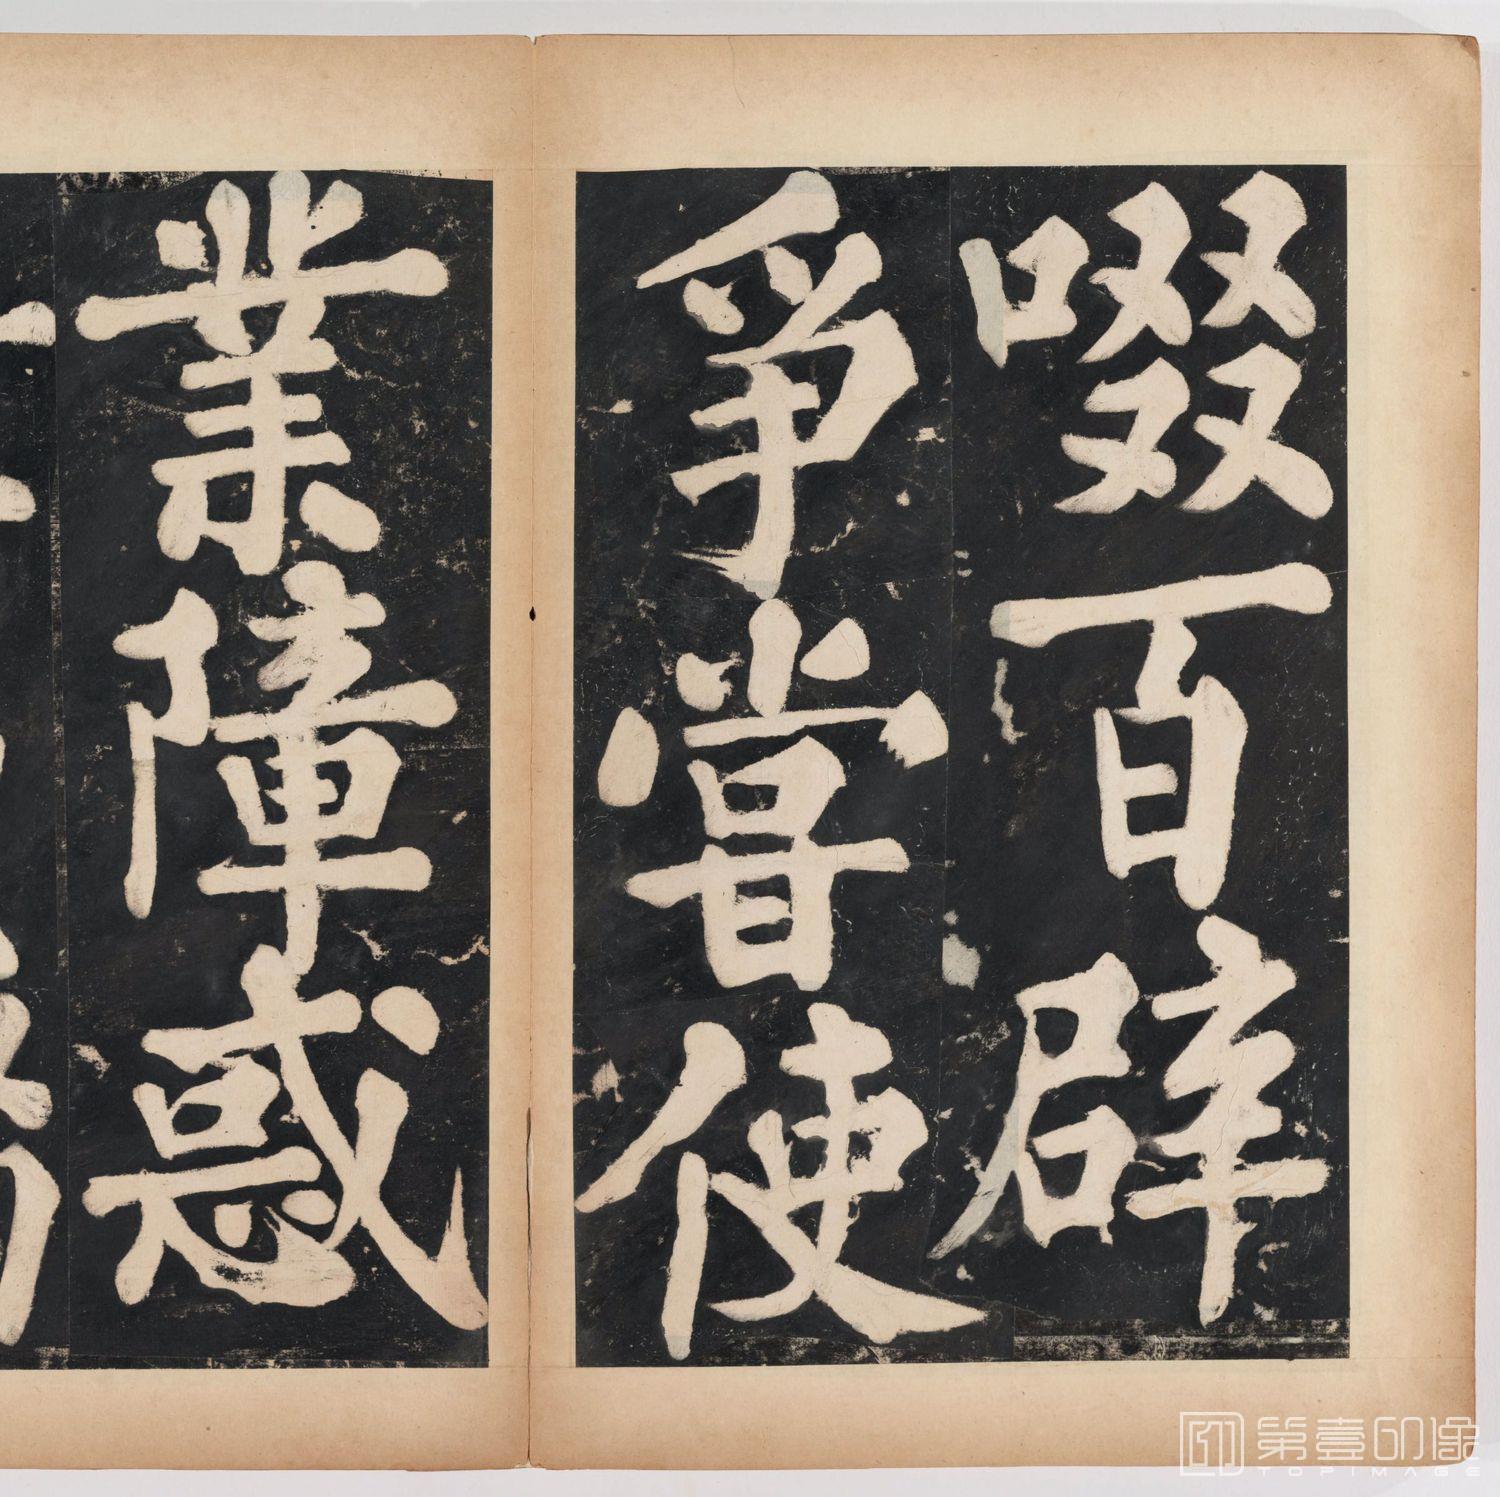 啜百辟
爭甞使
業障惑
第壹印像
TOPIMAGE